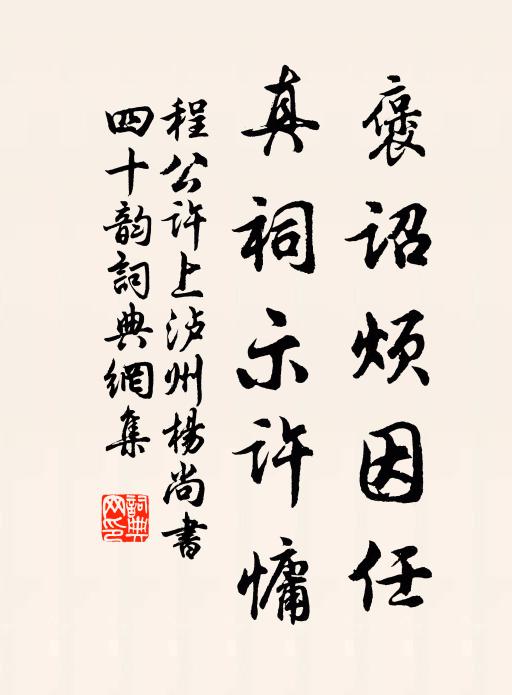 褒詔煩因任
真祠示許慵
程公许上泸州楊尚書
四十韵詞典網集
詞典
网印